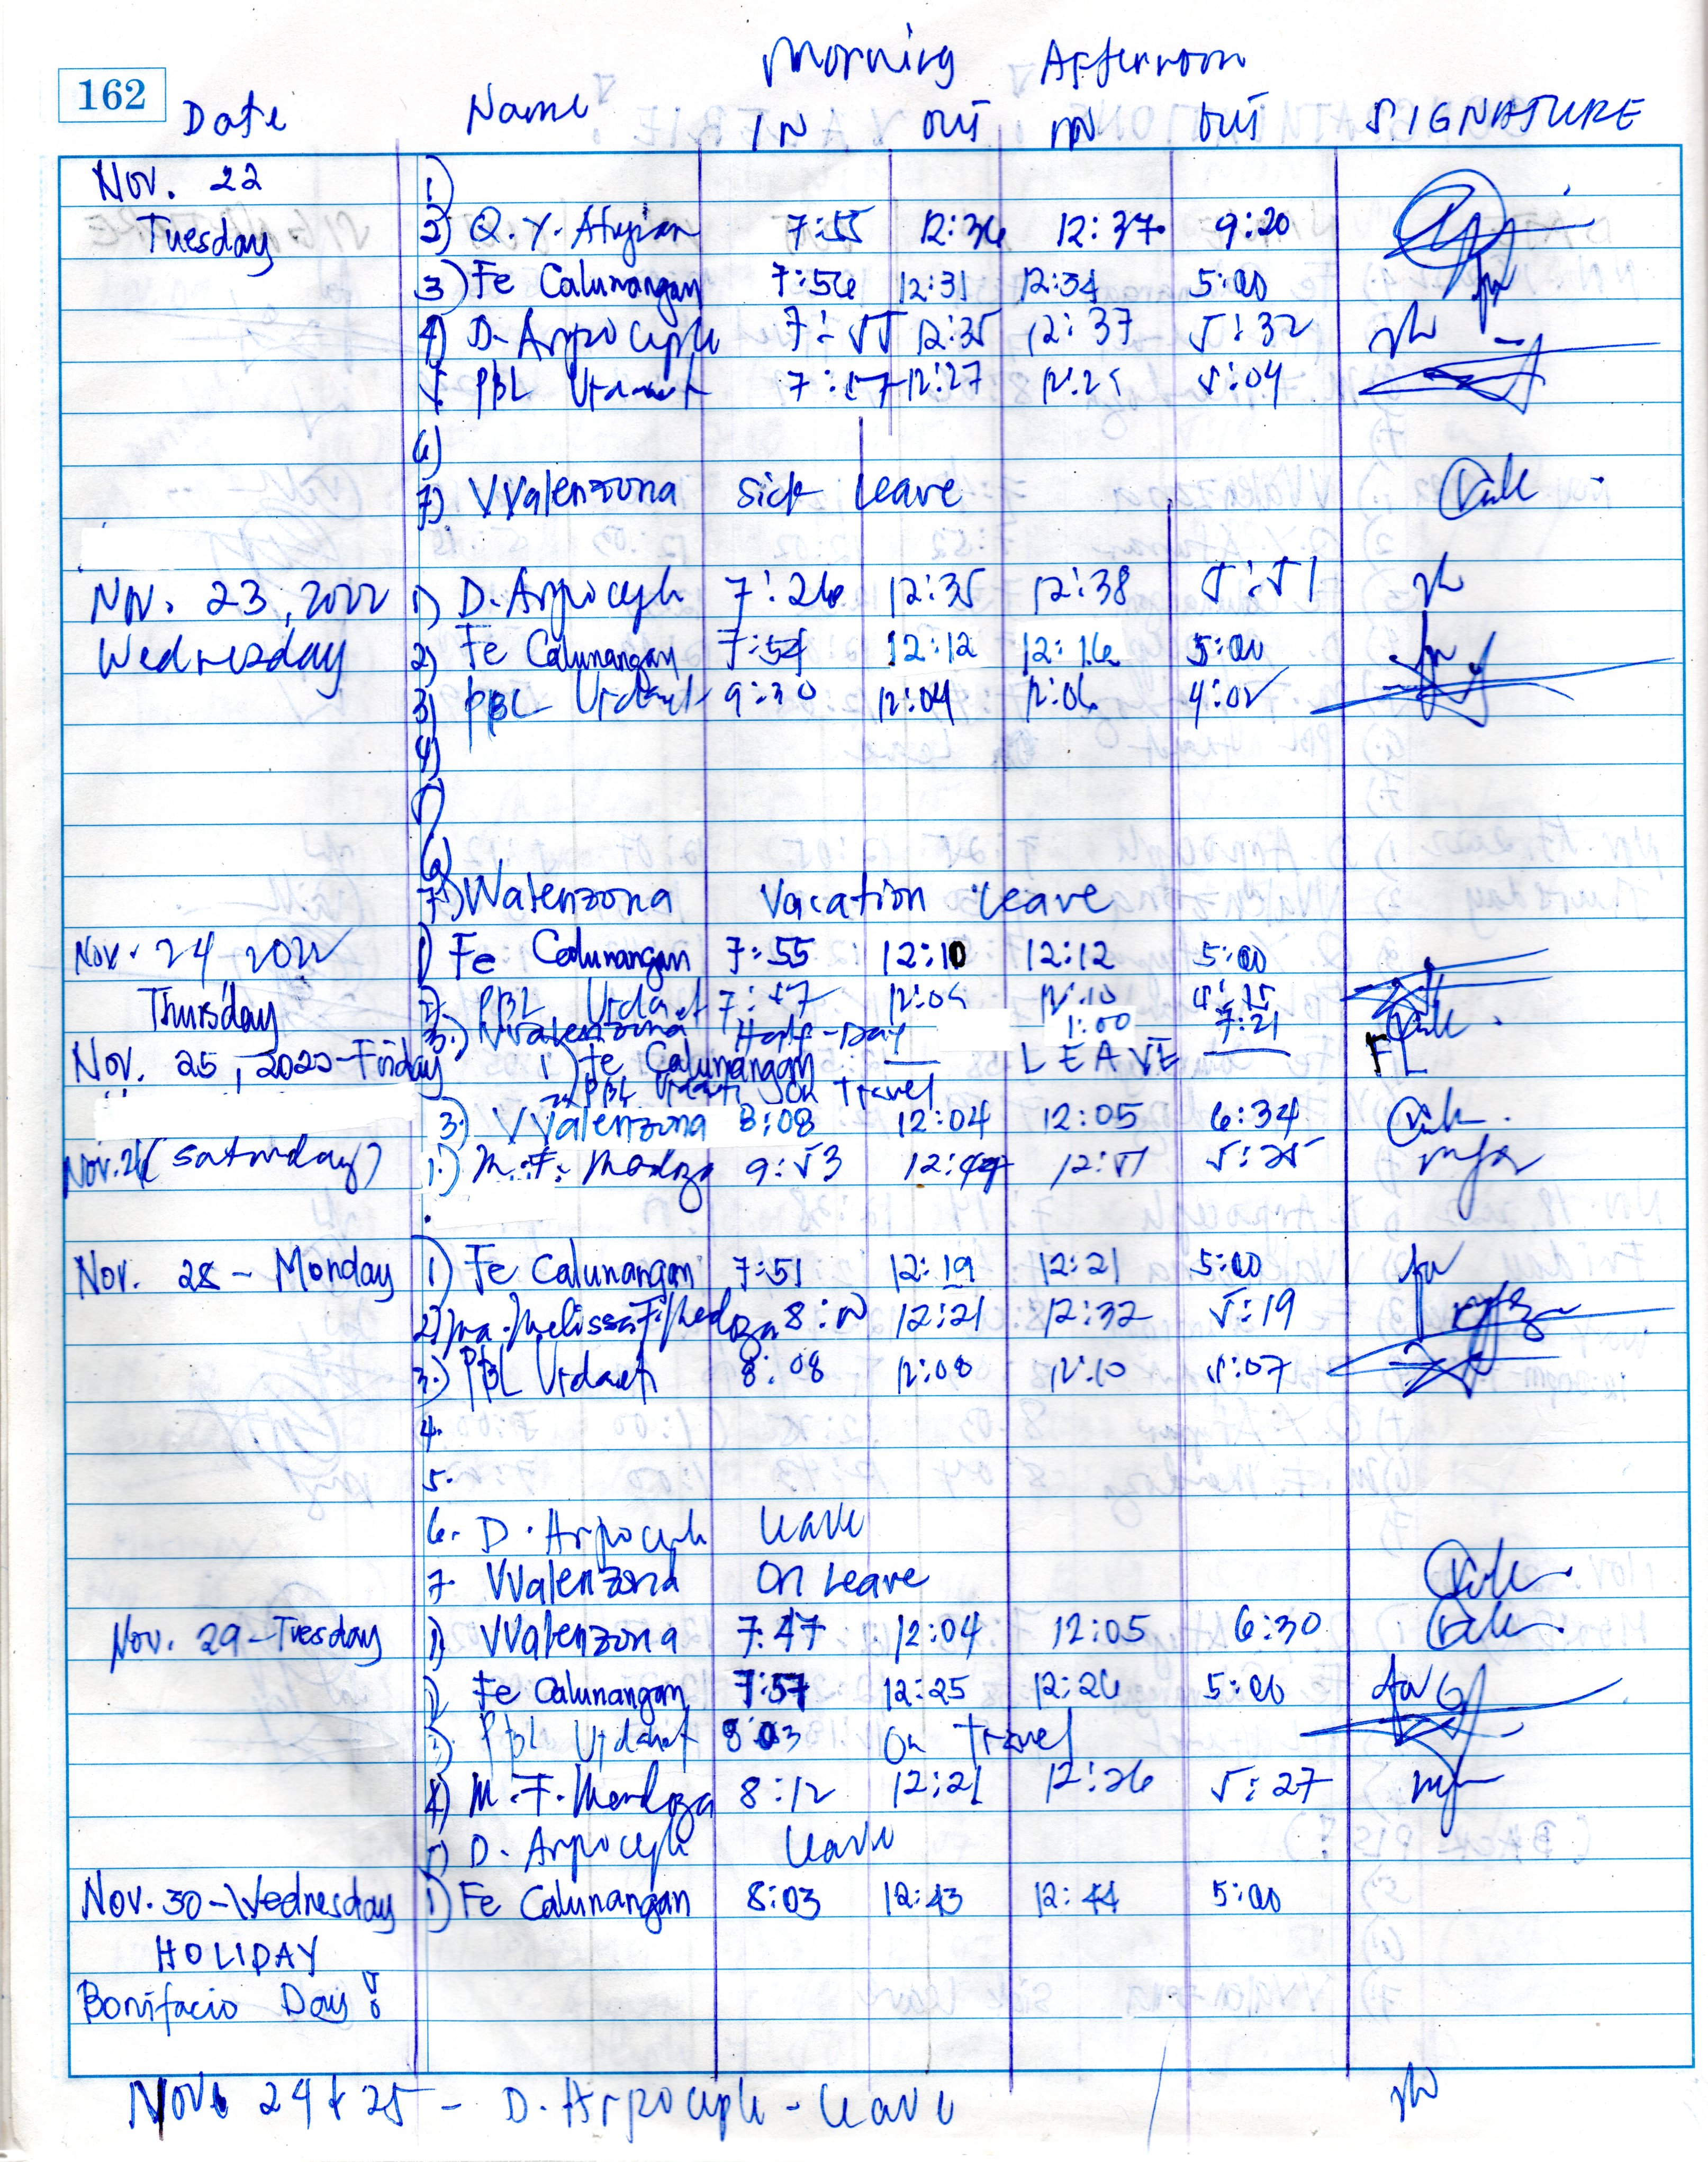 Morning Afternoon
162 Date Name IN OUT IN OUT SIGNATURE
Nov. 22 1)
Tuesday 2) Q. Y. 7:55 12:36 12:37 9:20
3) Fe Calunangan 7:56 12:31 12:34 5:00
4) D. Arpoceple 7:55 12:35 12:37 5:32
5. PBL Urdaneta 7:57 12:27 5:04
6)
7) VValenzona Sick Leave
Nov. 23, 2022 1) D. Arpoceple 7:26 12:35 12:38 5:51
Wednesday 2) Fe Calunangan 7:54 12:12 12:16 5:00
3) PBL Urdaneta 9:30 12:04 12:06 4:02
4)
5)
6)
7) VValenzona Vacation Leave
Nov. 24 2022 1) Fe Calunangan 7:55 12:10 12:12 5:00
Thursday 2) PBL Urdaneta 12:10
3.) VValenzona Half-Day 1:00 7:21
Nov. 25, 2022-Friday 1) Fe Calunangan LEAVE FL
2) PBL Urdaneta on Travel
3.) VValenzona 8:08 12:04 12:05 6:34
Nov. 26 (Saturday) 1.) M. F. Mendoza 9:53 12:51 5:25
Nov. 28 - Monday 1) Fe Calunangan 7:51 12:19 12:21 5:00
2) Ma. Melissa F. Mendoza 12:21 12:32 5:19
3.) PBL Urdaneta 8:08 12:08 12:10 5:07
4.
5.
6. D. Arpoceple leave
7. VValenzona On Leave
Nov. 29-Tuesday 1) VValenzona 7:47 12:04 12:05 6:30
2) Fe Calunangan 7:57 12:25 12:26 5:00
3) PBL Urdaneta 8:03 On Travel
4) M. F. Mendoza 8:12 12:21 12:26 5:27
5) D. Arpoceple leave
Nov. 30-Wednesday 1) Fe Calunangan 8:03 12:43 12:44 5:00
HOLIDAY
Bonifacio Day!
Nov. 24 & 25 - D. Arpoceple - leave